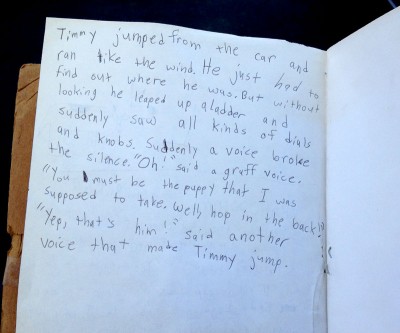 Timmy jumped from the car and
ran like the wind. He just had to
find out where he was. But without
looking he leaped up a ladder and
suddenly saw all kinds of dials
and knobs. Suddenly a voice broke
the silence. "Oh!" said a gruff voice.
"You must be the puppy that I was
supposed to take. Well, hop in the back!"
"Yep, that's him!" said another
voice that made Timmy jump.